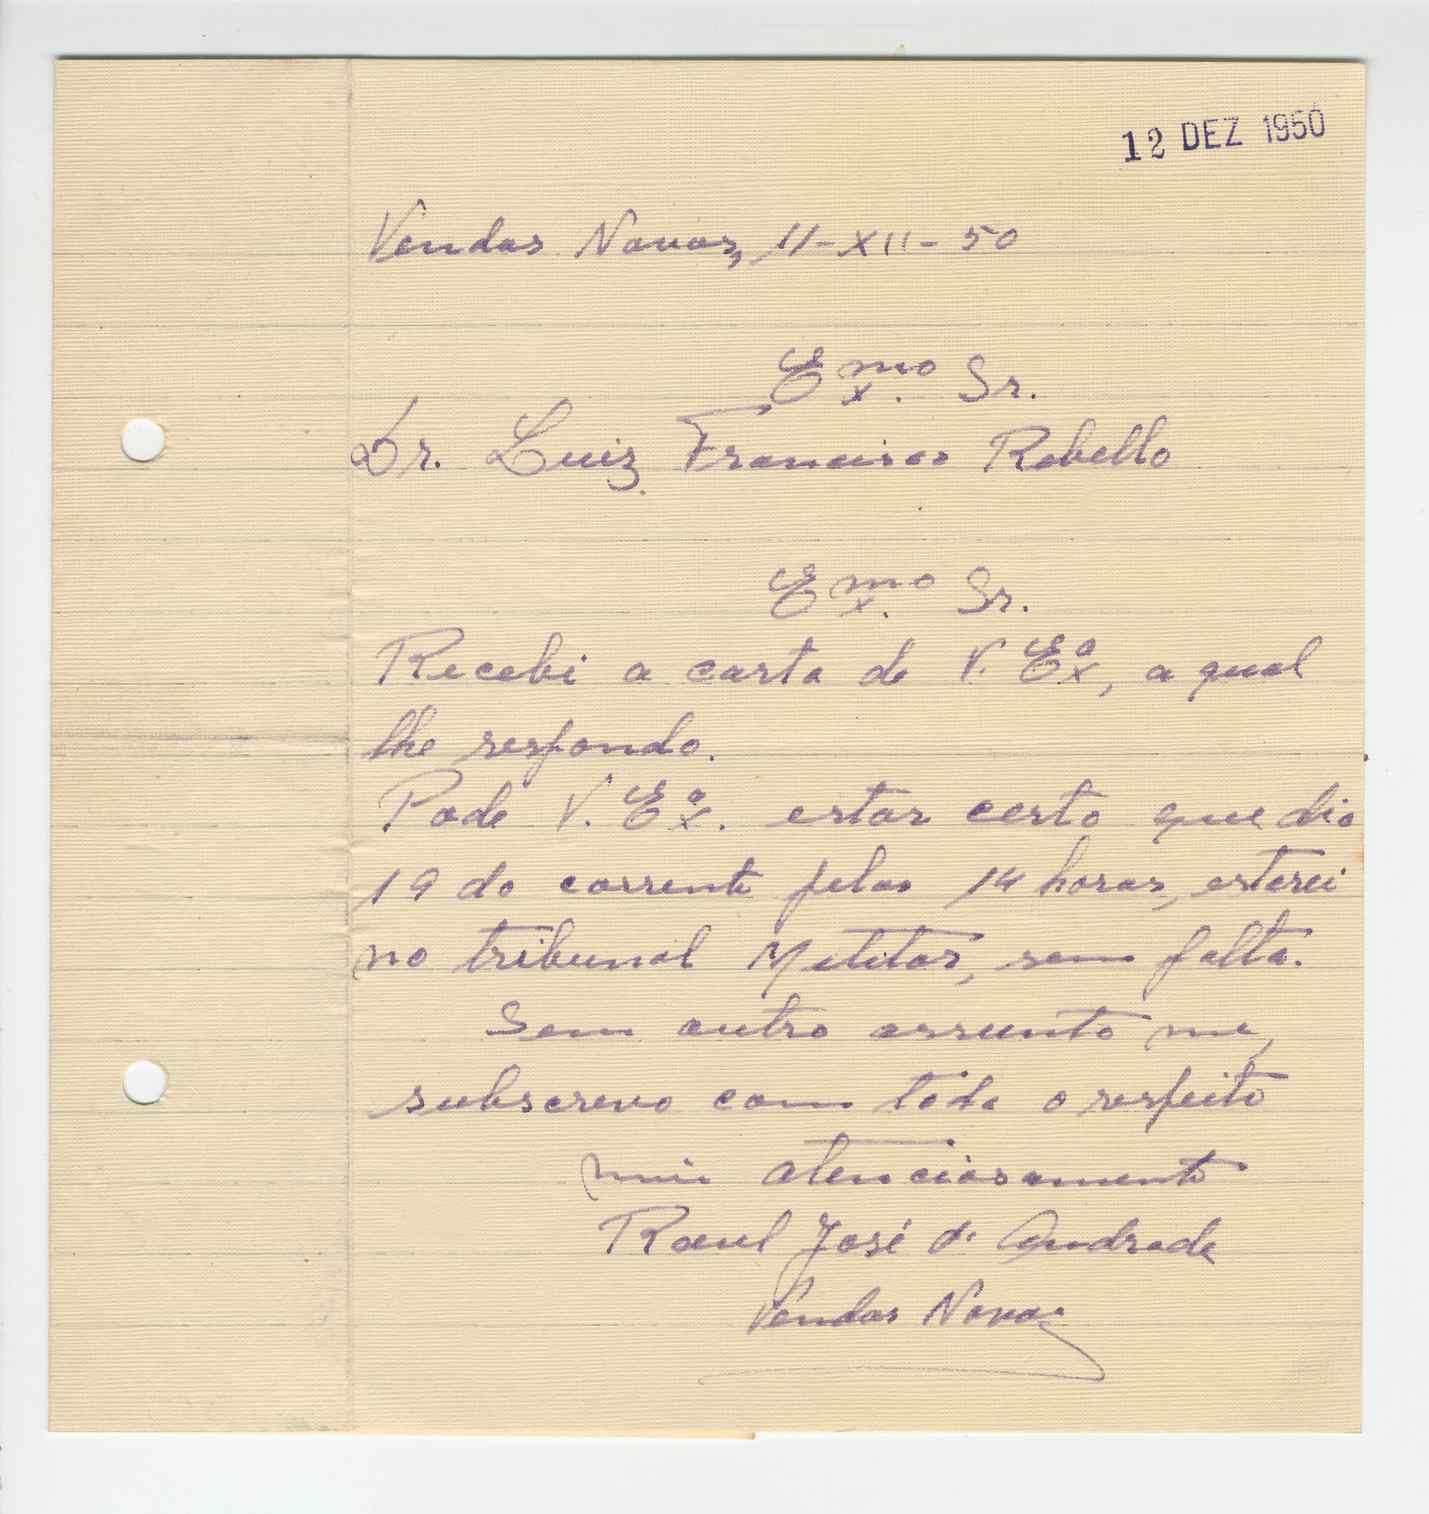 12 DEZ 1950
Vendas Novas, 11-XII-50
Exmo. Sr.
Dr. Luiz Francisco Rebello
Exmo. Sr.
Recebi a carta de V. Exª, a qual
lhe respondo.
Pode V. Exª. estar certo que dia
19 do corrente pelas 14 horas, estarei
no tribunal Melitar, sem falta.
Sem outro assunto me,
subscrevo com todo o respeito
mui atenciosamente
Raul José d' Andrade
Vendas Novas